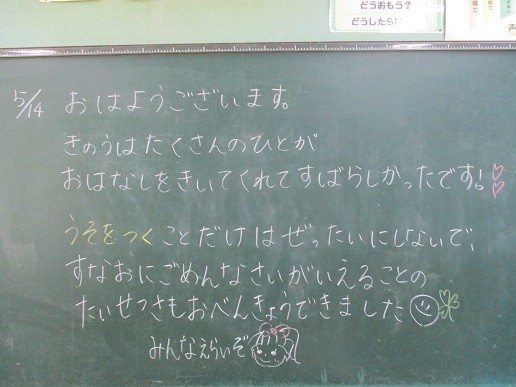 どうおもう?
どうしたら
声
5/14 おはようございます。
きのうはたくさんのひとが
おはなしをきいてくれてすばらしかったです!
うそをつくことだけはぜったいにしないで、
すなおにごめんなさいがいえることの
たいせつさもおべんきょうできました
みんなえらいぞ